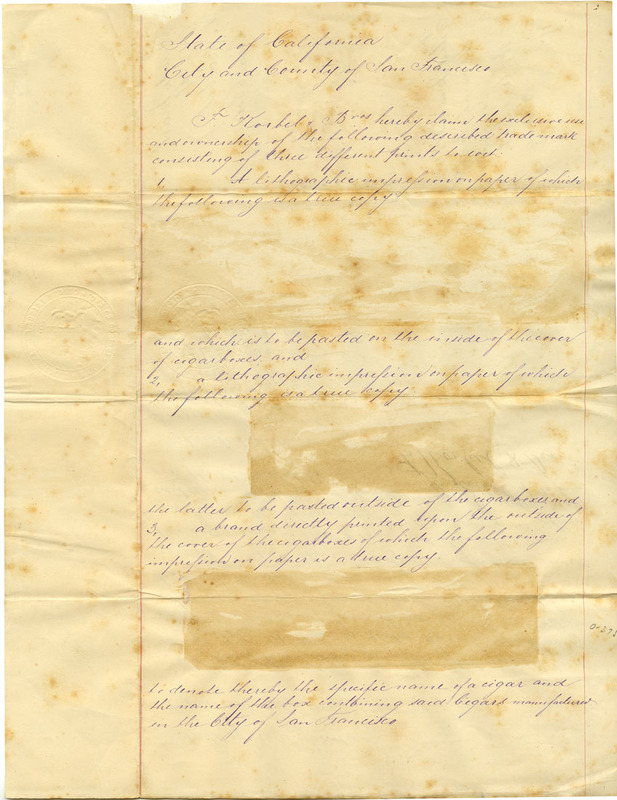 2
State of California
City and County of San Francisco
F. Korbel & Bros hereby claim the exclusive use
and ownership of the following described trade mark
consisting of three different prints to wit:
1, A lithographic impression on paper of which
the following is a true copy
and which is to be pasted on the inside of the cover
of cigarboxes, and
2, a lithographic impression on paper of which
the following is a true copy
the latter to be pasted outside of the cigarboxes and
3, a brand directly printed upon the outside of
the cover of the cigarboxes of which the following
impression on paper is a true copy.
to denote thereby the specific name of a cigar and
the name of the box containing said Cigars manufactured
in the City of San Francisco